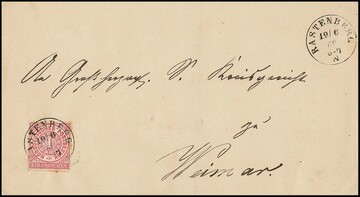 RASTENBERG
19/6
N
An Großherzog. S. Kreisgericht
zu
Weimar.
RASTENBERG
19/6
1